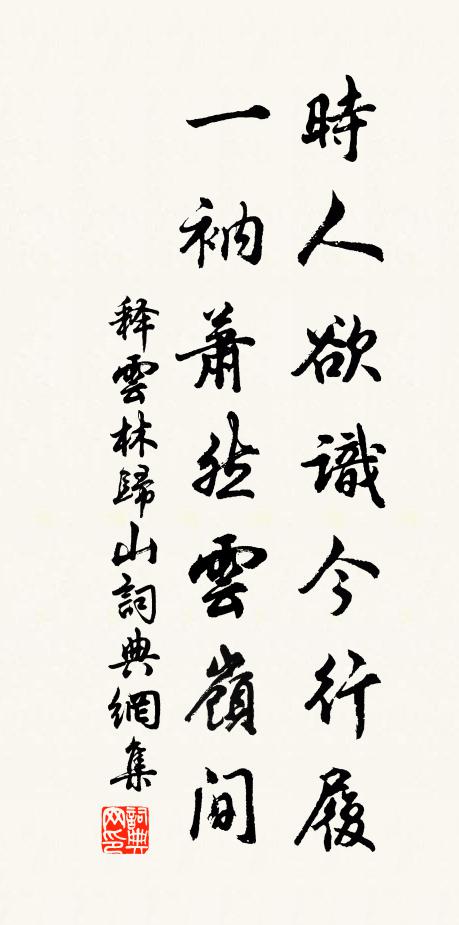 時人欲識今行履
一衲蕭然雲嶺間
释雲林歸山詞典網集
詞典網印